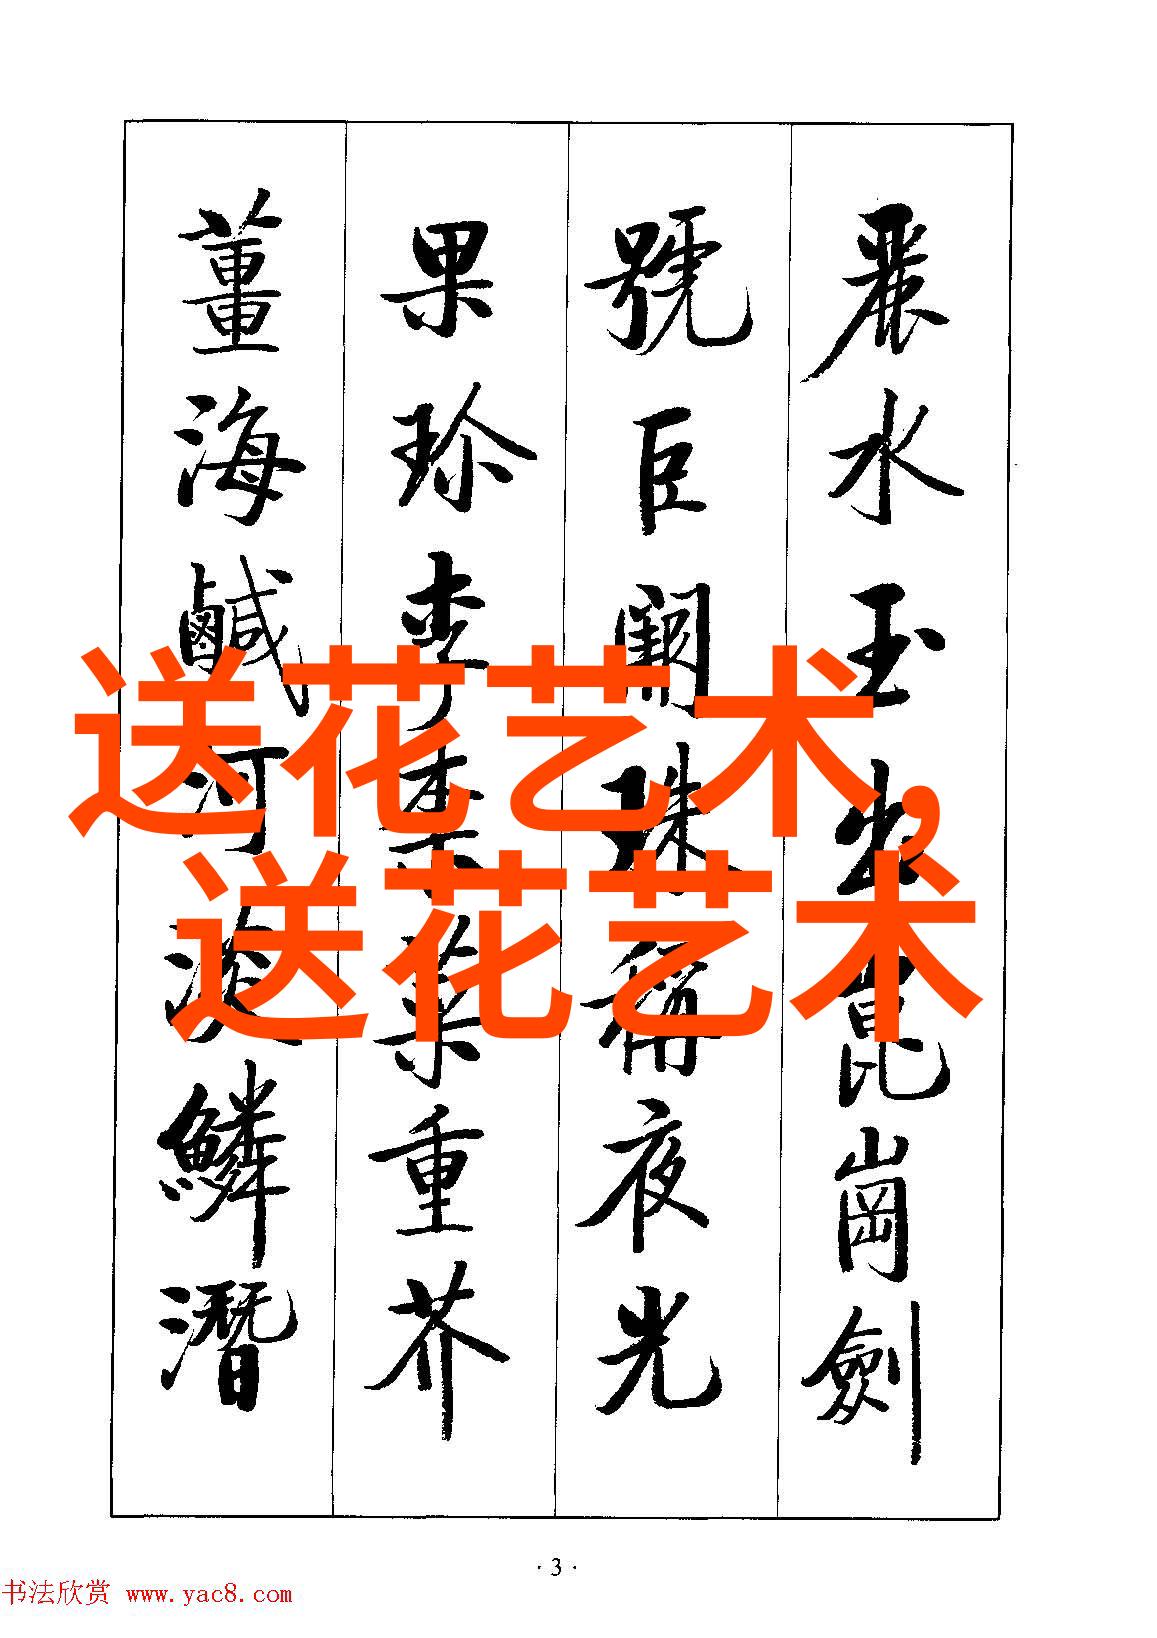 麗水玉出崑崗劍
號巨闕珠稱夜光
果珍李柰菜重芥
薑海鹹河淡鱗潛
送花艺术,
送花艺术
·3·
书法欣赏 www.yac8.com